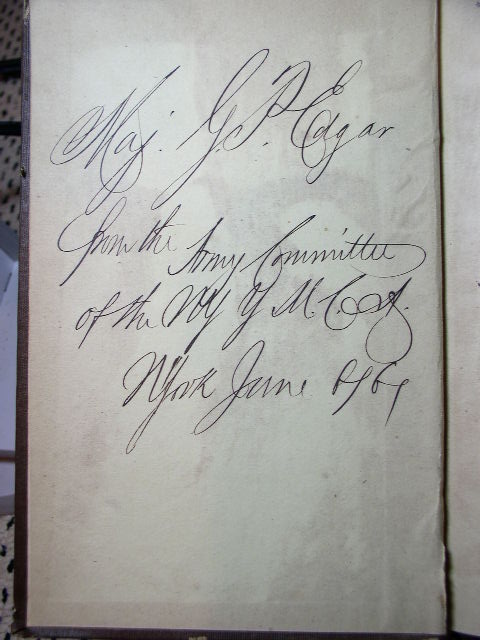 Maj. G. P. Edgar
from the Army Committee
of the NY Y M. C. A.
N York June